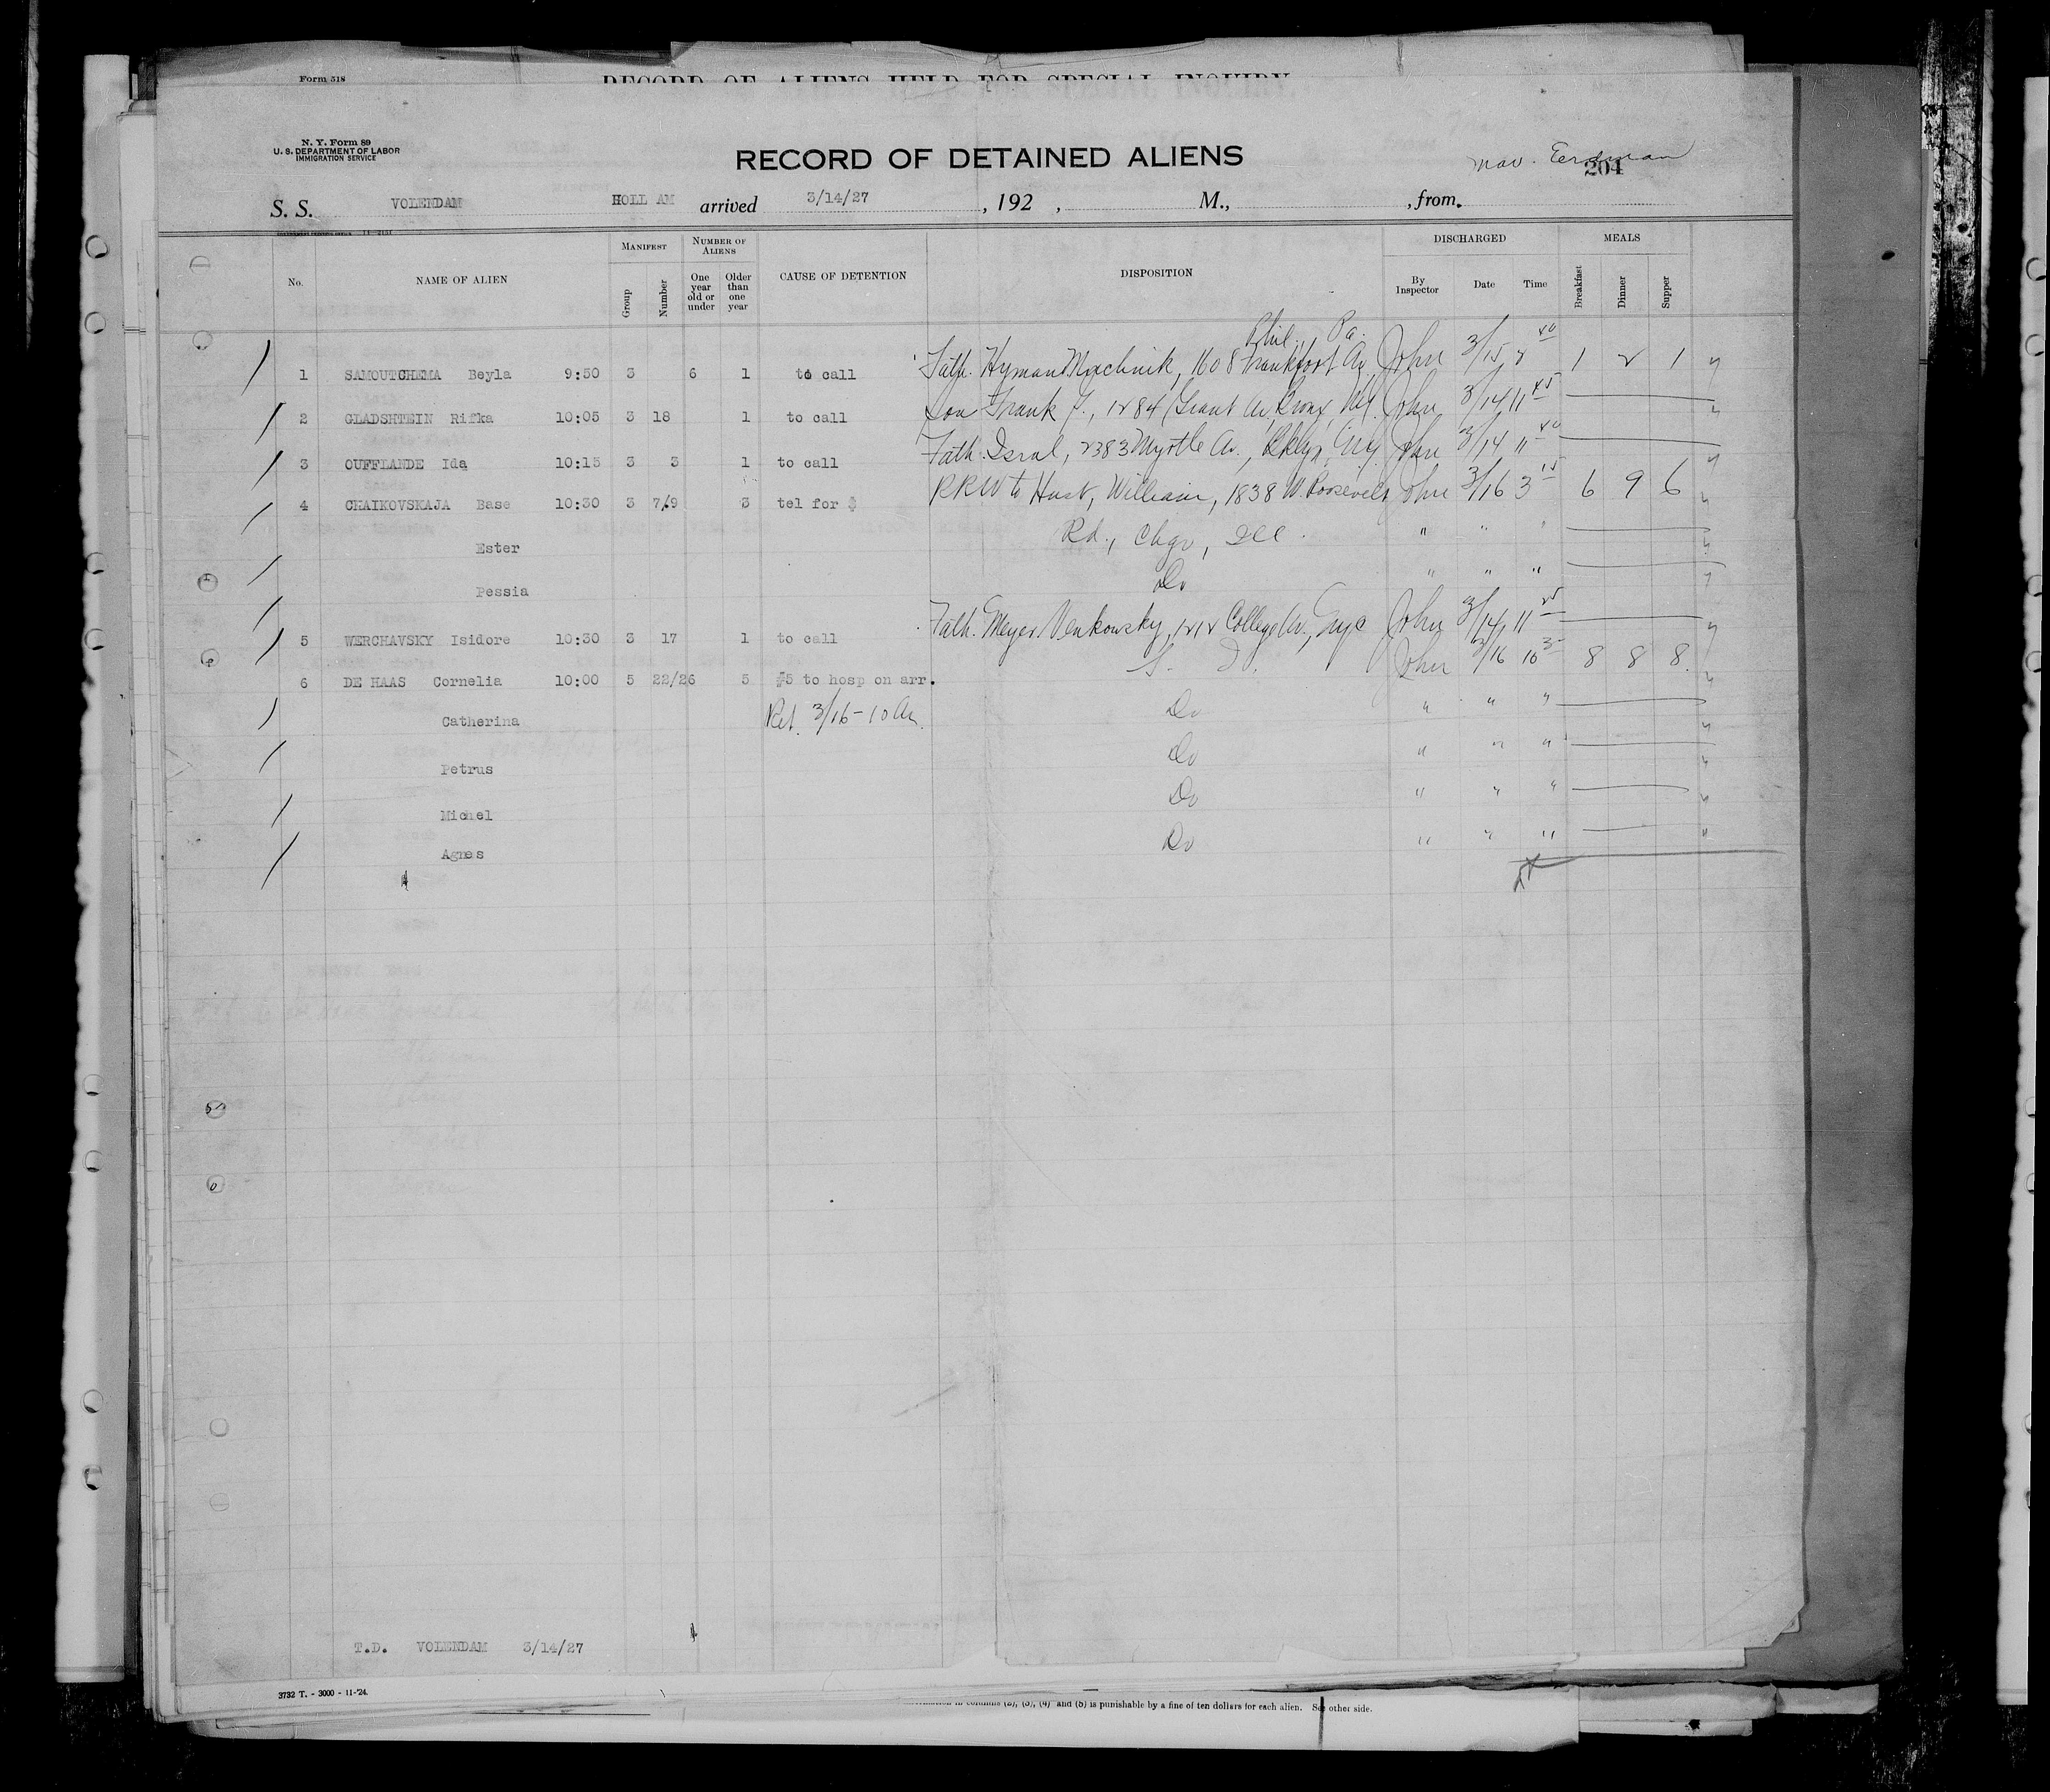 Form 518
RECORD OF ALIENS HELD FOR SPECIAL INQUIRY.
N. Y. Form 89
U. S. DEPARTMENT OF LABOR
IMMIGRATION SERVICE
RECORD OF DETAINED ALIENS
Nov. Eerdman
204
S. S. VOLENDAM HOLL AM arrived 3/14/27 , 192 , M., , from.
No. NAME OF ALIEN MANIFEST Group Number NUMBER OF ALIENS One year old or under Older than one year CAUSE OF DETENTION DISPOSITION DISCHARGED By Inspector Date Time MEALS Breakfast Dinner Supper
Phil., Pa.
1 SAMOUTCHEMA Beyla 9:50 3 6 1 to call Fath. Hyman Machnik, 1608 Frankfort Av. John 3/15 2 40 1 2 1
2 GLADSHTEIN Rifka 10:05 3 18 1 to call Son Frank J., 1284 Grant Av, Bronx, NY. John 3/14 11 45
3 OUFFLANDE Ida 10:15 3 3 1 to call Fath. Isral, 2383 Myrtle Av., Bklyn, NY. John 3/14 11 40
4 CHAIKOVSKAJA Base 10:30 3 7/9 3 tel for $ RRW to Husb, William, 1838 W. Roosevelt John 3/16 3 15 6 9 6
Ester Rd., Chgo, Ill. " " "
Pessia Do " " "
5 WERCHAVSKY Isidore 10:30 3 17 1 to call Fath. Meyer Venkowsky, 1212 College Av., NYC John 3/14 11 25
6 DE HAAS Cornelia 10:00 5 22/26 5 #5 to hosp on arr. S. I. John 3/16 10 35 8 8 8
Catherina Ret. 3/16 - 10 Am. Do " " "
Petrus Do " " "
Michel Do " " "
Agnes Do " " "
T.D. VOLENDAM 3/14/27
3732 T. - 3000 - 11-'24.
in columns (2), (3), (4) and (5) is punishable by a fine of ten dollars for each alien. See other side.